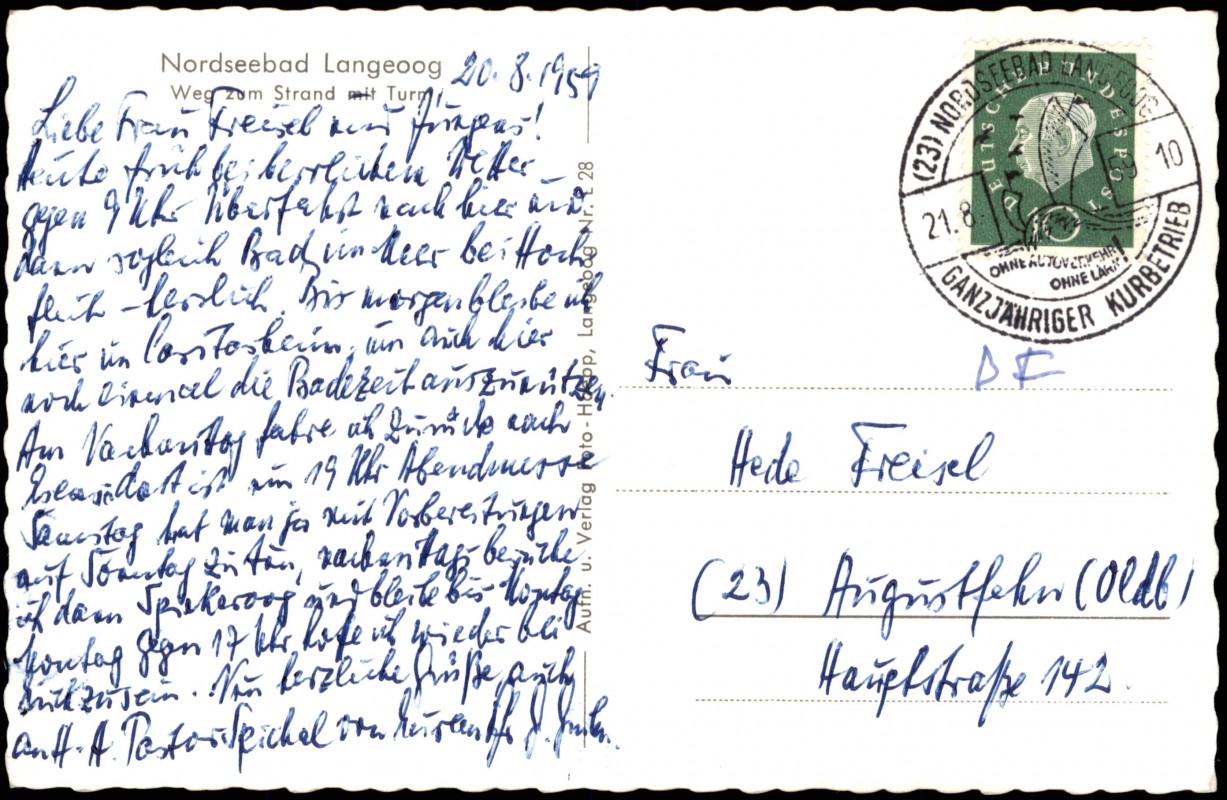 Nordseebad Langeoog
Weg zum Strand mit Turm
20.8.1959
Liebe Frau Freisel und Jungens!
Heute früh bei herrlichem Wetter
gegen 9 Uhr Überfahrt nach hier und
dann sogleich Bad im Meer bei Hoch
flut – herrlich. Bis morgen bleibe ich
hier im Caritasheim, um auch hier
noch einmal die Badezeit auszunützen.
Am Nachmittag fahre ich zurück nach
dort ist um 19 Uhr Abendmesse
Samstag hat man ja mit Vorbereitungen
auf Sonntag zu tun, nachmittags besuche
ich dann Spiekeroog und bleibe bis Montag
Montag gegen 17 Uhr hoffe ich wieder bei
zurück zu sein. Nun herzliche Grüße auch
an H. H. Pastor Spichal von Eurem
Aufn. u. Verlag Foto-Hopp, Langeoog Nr. L 28
(23) NORDSEEBAD LANGEOOG
21.8.59 10
OHNE AUTOVERKEHR
OHNE LÄRM!
GANZJÄHRIGER KURBETRIEB
DEUTSCHE BUNDESPOST
10
DF
Frau
Hede Freisel
(23) Augustfehn (Oldb)
Hauptstraße 142.